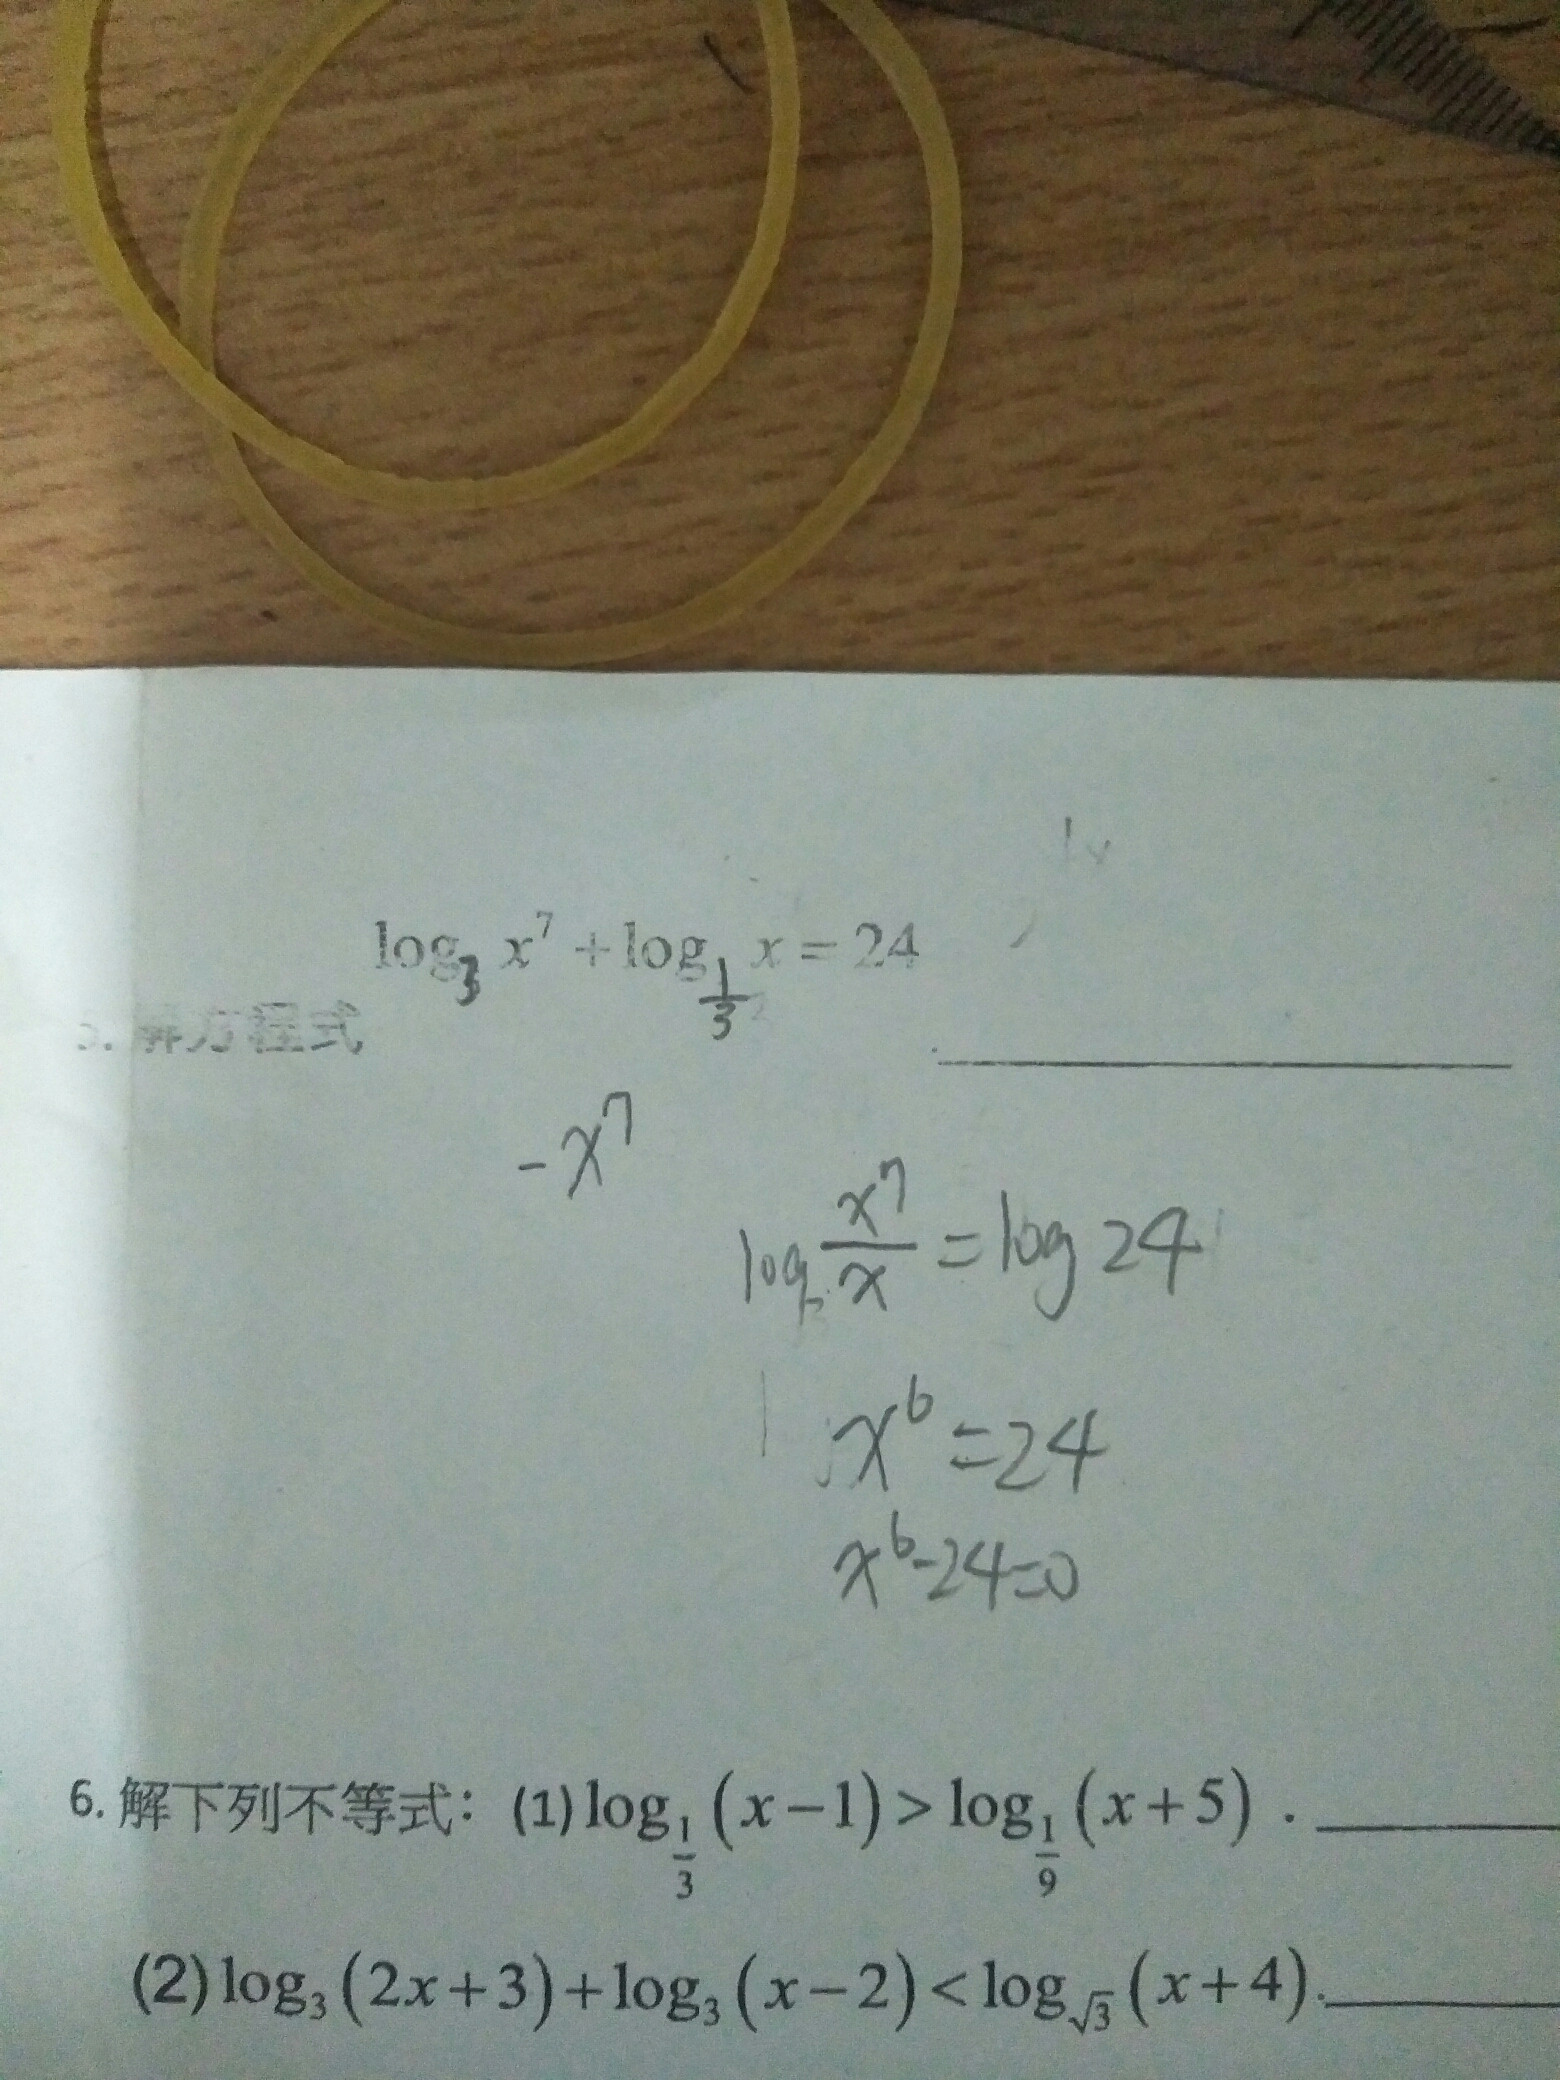 log₃ x⁷ + log_{1/3} x = 24
5. 解方程式
-x⁷
log x⁷/x = log 24
x⁶ = 24
x⁶-24=0
6. 解下列不等式: (1) log_{1/3} (x-1) > log_{1/9} (x+5) .
(2) log₃ (2x+3) + log₃ (x-2) < log_{√3} (x+4).